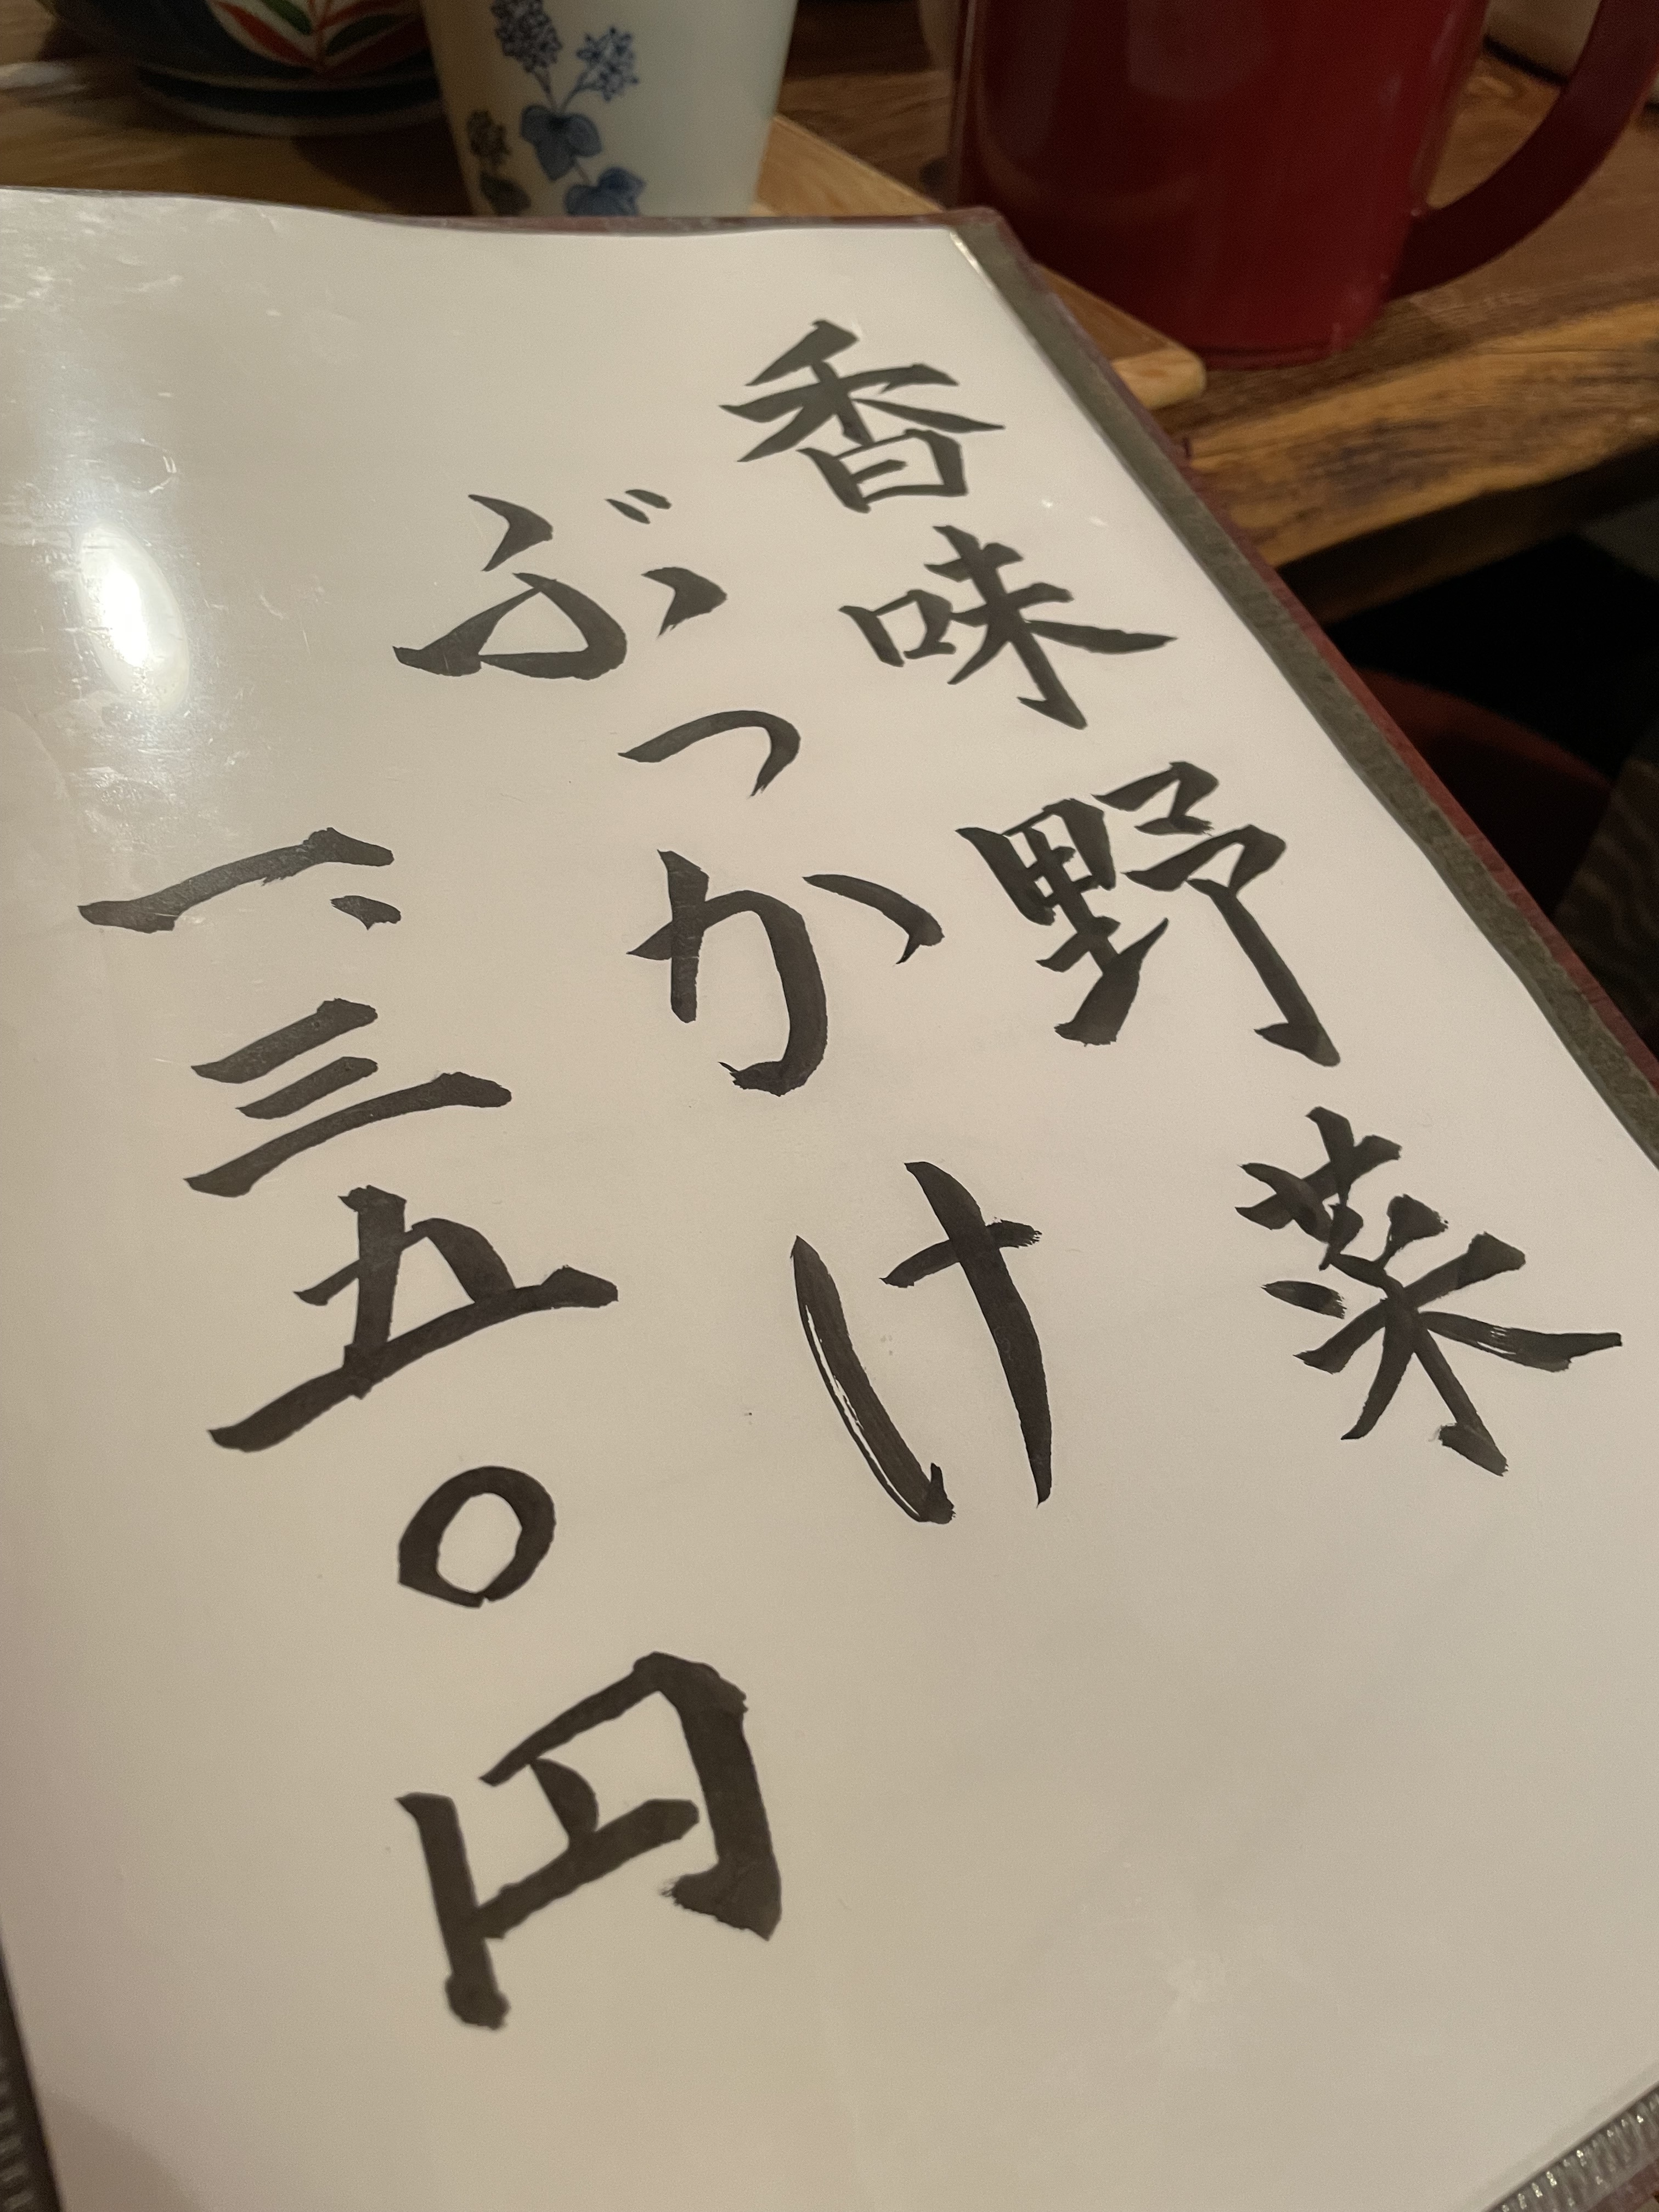 香味野菜
ぶっかけ
一、三五〇円